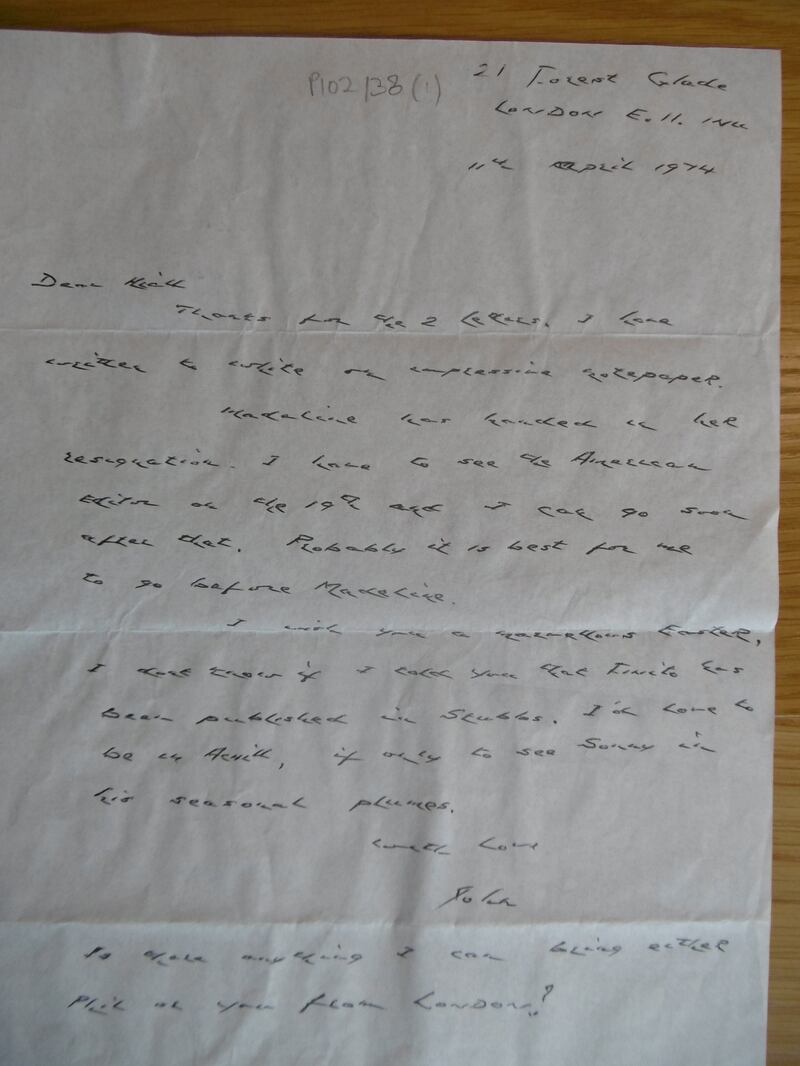 P102/38(1)
21 Forest Glade
LONDON E.11. 1NU
11th April 1974
Dear
Thanks for the 2 letters. I have
written to white on impressive notepaper.
Madeline has handed in her
resignation. I have to see the American
Editor on the 19th and I can go soon
after that. Probably it is best for me
to go before Madeline.
I wish you a marvellous Easter,
I dont know if I told you that has
been published in Stubbs. I'd love to
be in Achill, if only to see Sonny in
his seasonal plumes.
with love
John
Is there anything I can bring either
Phil or you from LONDON?